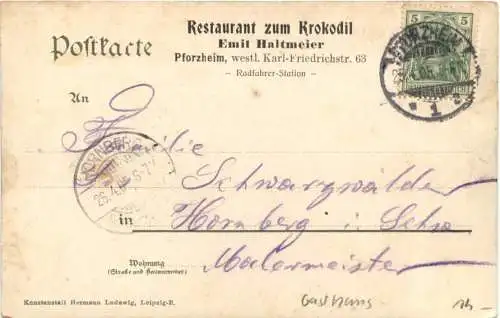 Restaurant zum Krokodil
Emil Haltmeier
Pforzheim, westl. Karl-Friedrichstr. 63
– Radfahrer-Station –
Postkarte
5 5
PFORZHEIM
* 1
An
Familie
HORNBERG
Schwarzwälder
in Hornberg i. Schw.
Malermeister
Wohnung
(Straße und Hausnummer)
Kunstanstalt Hermann Ludewig, Leipzig-R.
Gasthaus